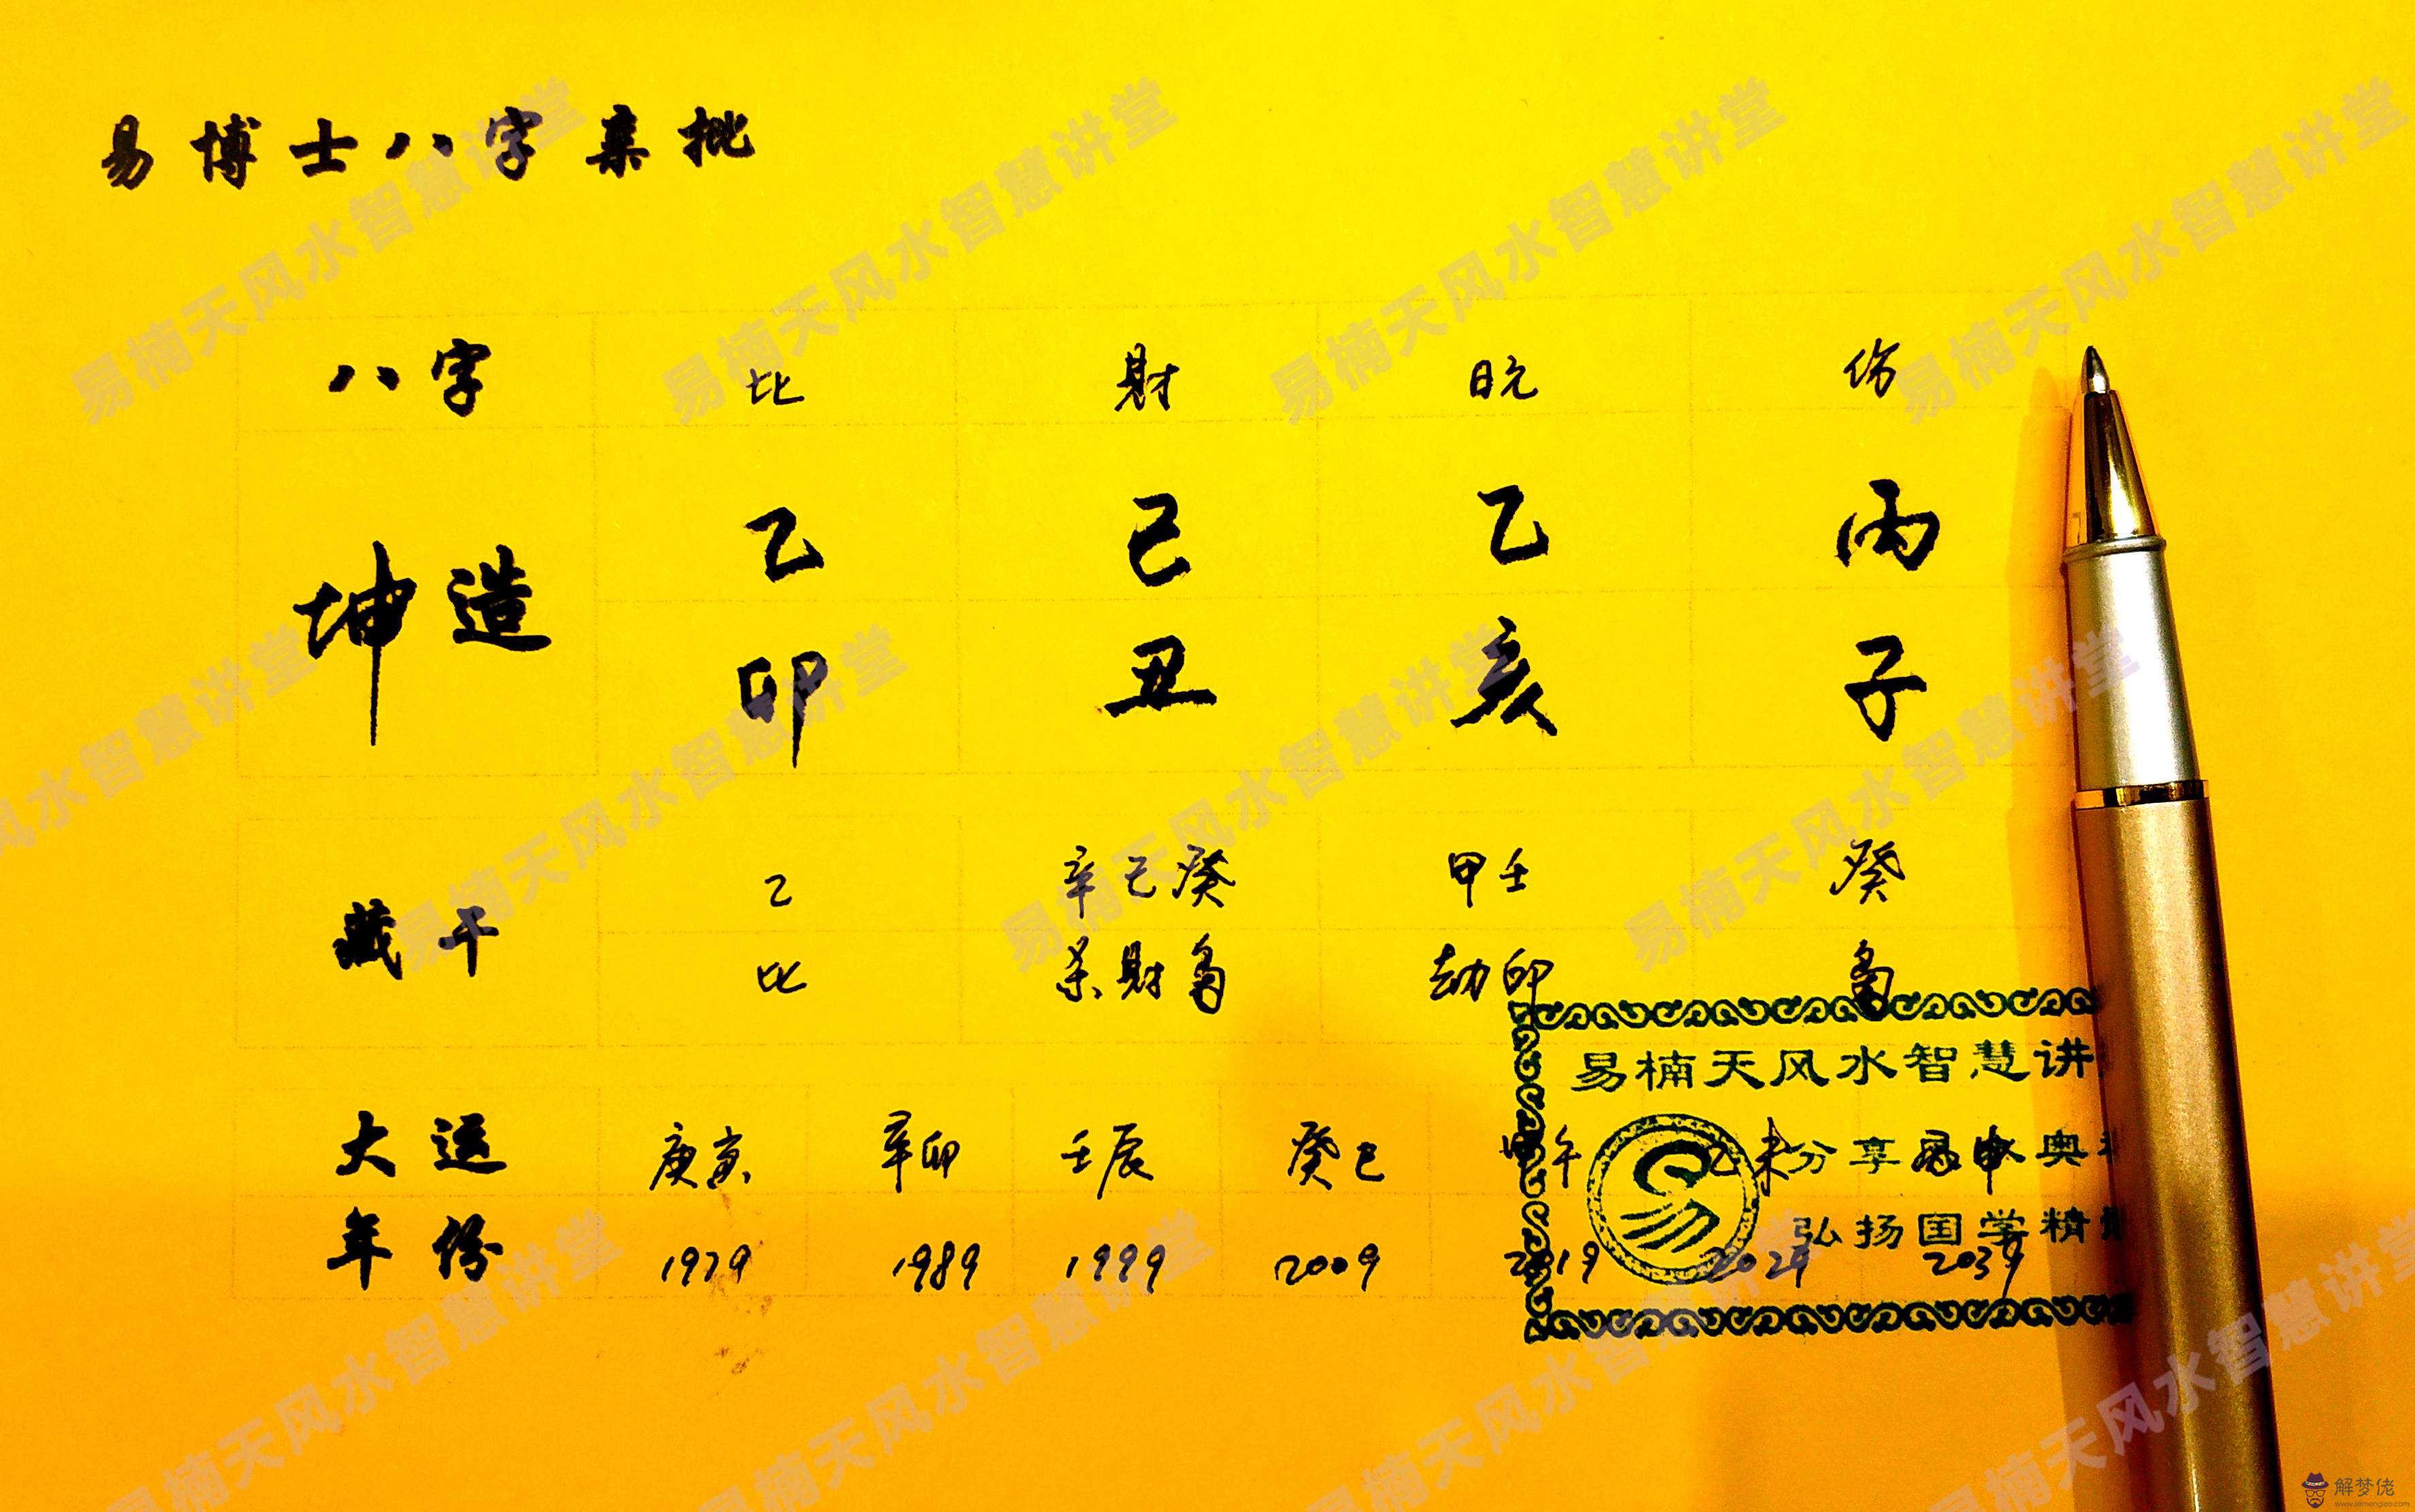 易博士八字亲批
八字 比 财 日元 伤
坤造 乙 己 乙 丙
卯 丑 亥 子
藏干 乙 辛己癸 甲壬 癸
比 杀财枭 劫印 枭
易楠天风水智慧讲
大运 庚寅 辛卯 壬辰 癸巳 甲午 乙未 丙申
分享 奥
弘扬国学精
年份 1979 1989 1999 2009 2019 2029 2039
易楠天风水智慧讲堂
解梦佬